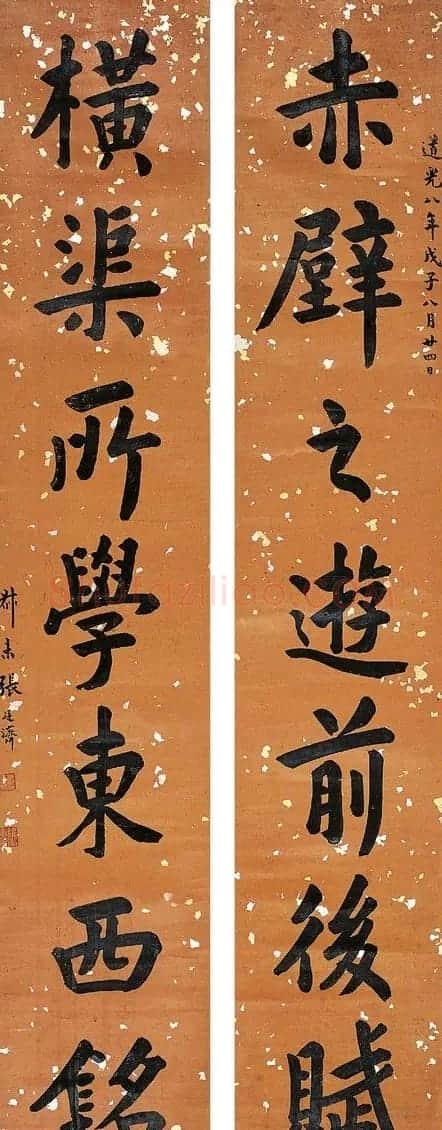 道光八年戊子八月廿四日
赤壁之遊前後賦
橫渠所學東西銘
叔未張廷濟